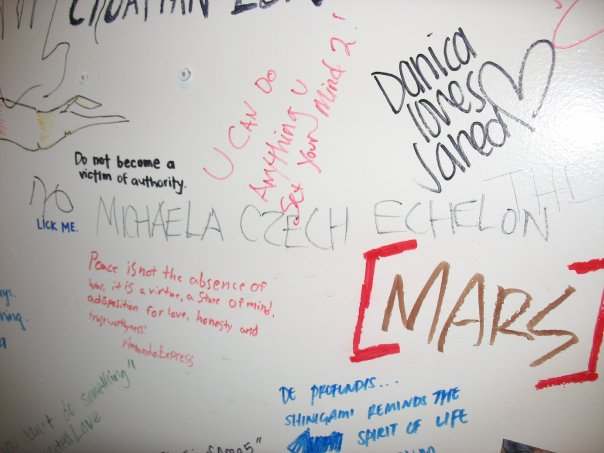 CROATIAN
U CAN DO
Anything U
Set Your Mind 2!
Danica
loves
Jared
Do not become a
victim of authority.
LICK ME.
MICHAELA CZECH ECHELON
THE
Peace is not the absence of
war, it is a virtue, a state of mind,
a disposition for love, honesty and
trustworthyness!
AmandaExpress
[MARS]
don't do something"
Love
DE PROFUNDIS...
SHINIGAMI REMINDS THE
SPIRIT OF LIFE